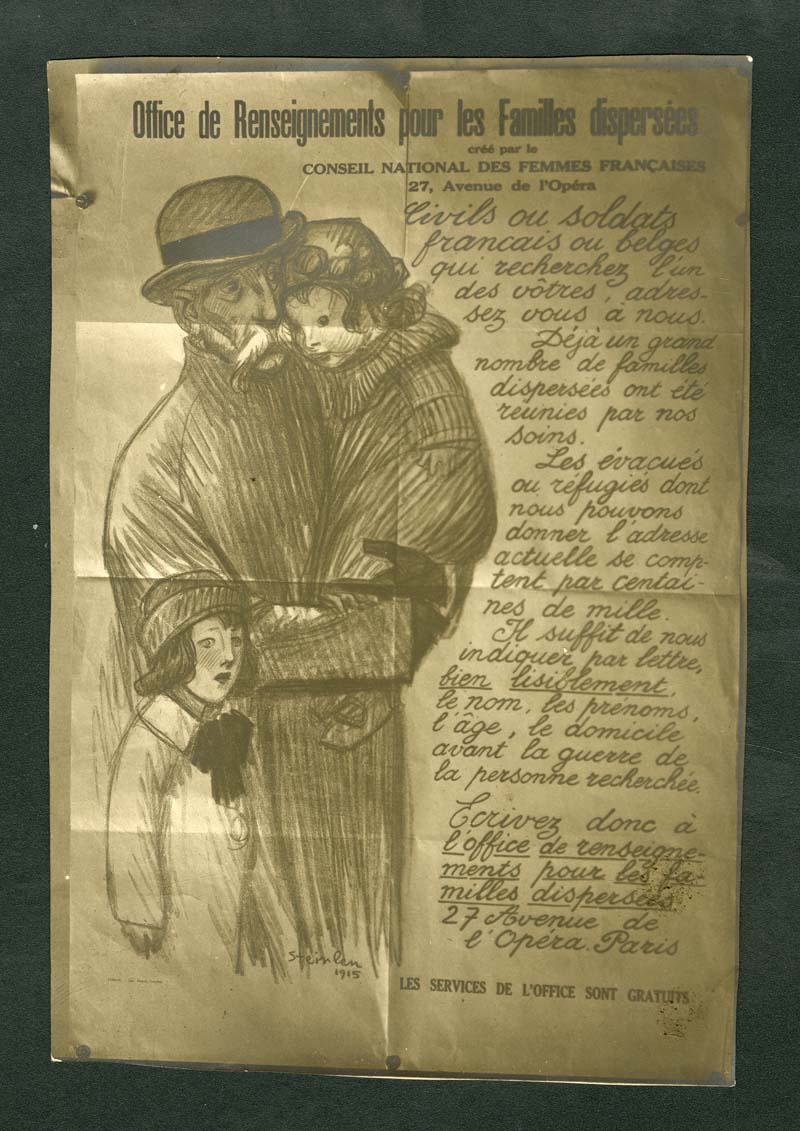 Office de Renseignements pour les Familles dispersées
créé par le
CONSEIL NATIONAL DES FEMMES FRANÇAISES
27, Avenue de l'Opéra
Civils ou soldats
français ou belges
qui recherchez l'un
des vôtres, adres-
sez vous à nous.
Déjà un grand
nombre de familles
dispersées ont été
réunies par nos
soins.
Les évacués
ou réfugiés dont
nous pouvons
donner l'adresse
actuelle se comp-
tent par centai-
nes de mille.
Il suffit de nous
indiquer par lettre,
bien lisiblement,
le nom, les prénoms,
l'âge, le domicile
avant la guerre de
la personne recherchée.
Ecrivez donc à
l'office de renseigne-
ments pour les fa-
milles dispersées
27 Avenue de
l'Opéra. Paris
Steinlen
1915
LES SERVICES DE L'OFFICE SONT GRATUITS